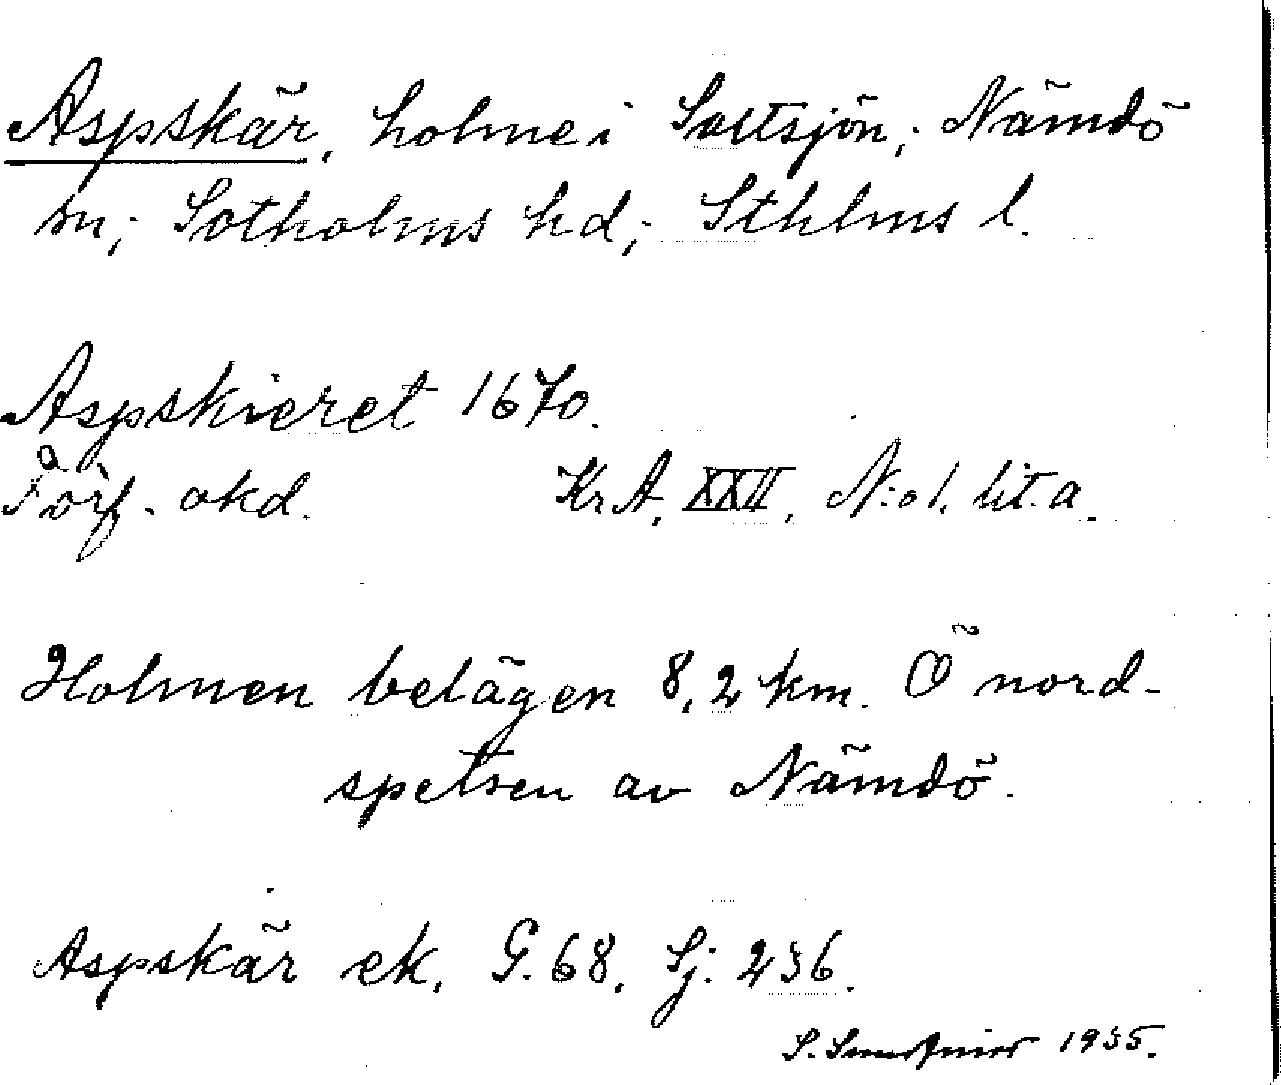 Aspskär, holme i Saltsjön; Nämdö
sn; Sotholms hd; Sthlms l.
Aspskieret 1670.
Förf. okd. Kr A, XXII, N:o 1. lit. a.
Holmen belägen 8,2 km. Ö nord-
spetsen av Nämdö.
Aspskär ek. G. 68. Sj. 236.
S. 1935.